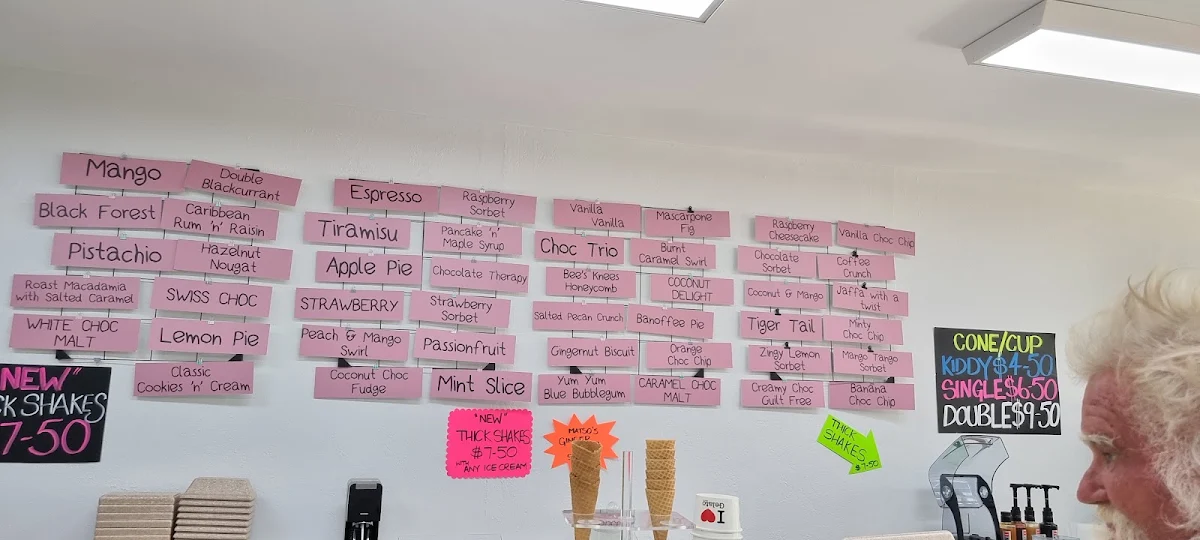 Mango
Double
Blackcurrant
Black Forest
Caribbean
Rum 'n' Raisin
Pistachio
Hazelnut
Nougat
Roast Macadamia
with Salted Caramel
SWISS CHOC
WHITE CHOC
MALT
Lemon Pie
Classic
Cookies 'n' Cream
Espresso
Raspberry
Sorbet
Tiramisu
Pancake 'n'
Maple Syrup
Apple Pie
Chocolate Therapy
STRAWBERRY
Strawberry
Sorbet
Peach & Mango
Swirl
Passionfruit
Coconut Choc
Fudge
Mint Slice
Vanilla
Vanilla
Mascarpone
Fig
Choc Trio
Burnt
Caramel Swirl
Bee's Knees
Honeycomb
COCONUT
DELIGHT
Salted Pecan Crunch
Banoffee Pie
Gingernut Biscuit
Orange
Choc Chip
Yum Yum
Blue Bubblegum
CARAMEL CHOC
MALT
Raspberry
Cheesecake
Vanilla Choc Chip
Chocolate
Sorbet
Coffee
Crunch
Coconut & Mango
Jaffa with a
twist
Tiger Tail
Minty
Choc Chip
Zingy Lemon
Sorbet
Mango Tango
Sorbet
Creamy Choc
Guilt Free
Banana
Choc Chip
NEW"
CK SHAKES
7-50
"NEW"
THICK SHAKES
$7-50
WITH ANY ICE CREAM
MATSO'S
THICK
SHAKES
$7-50
CONE/CUP
KIDDY $4-50
SINGLE $6-50
DOUBLE $9-50
I
Gelato